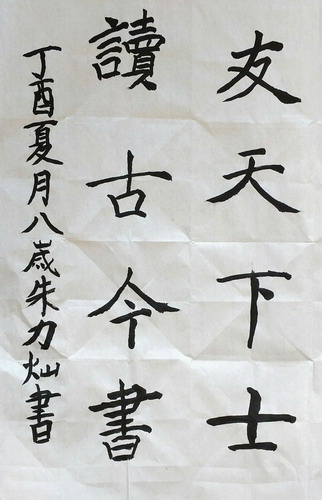 友天下士
讀古今書
丁酉夏月八歲朱力灿書